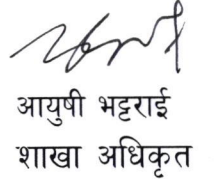 आयुषी भट्टराई
शाखा अधिकृत